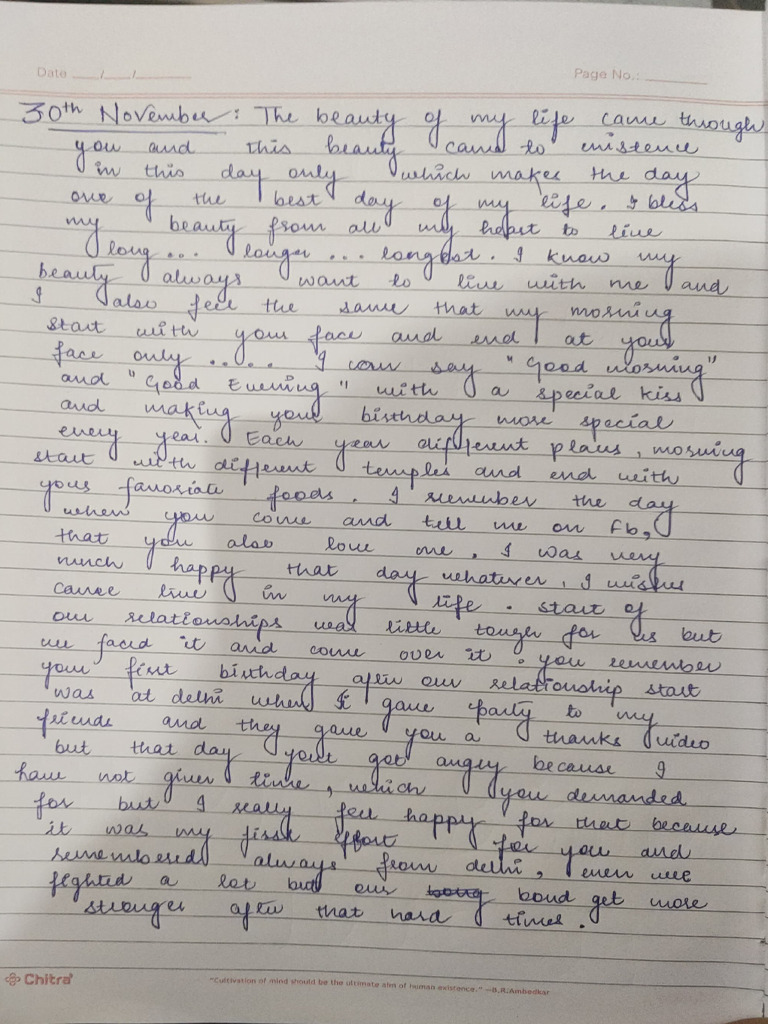 Date ___/___/______ Page No.: ______
30th November : The beauty of my life came through
you and this beauty came to existence
in this day only which makes the day
one of the best day of my life. I bless
my beauty from all my heart to live
long ... longer ... longest. I know my
beauty always want to live with me and
I also feel the same that my morning
start with your face and end at your
face only ..... I can say "Good morning"
and "Good Evening" with a special kiss
and making your birthday more special
every year. Each year different plans, morning
start with different temples and end with
your favoriate foods. I remember the day
when you come and tell me on fb,
that you also love me. I was very
much happy that day whatever, I wishes
came live in my life. start of
our relationships was little tough for us but
we faced it and come over it. you remember
your first birthday after our relationship start
was at delhi when I gave party to my
friends and they gave you a thanks video
but that day you got angry because I
have not given time, which you demanded
for but I really feel happy for that because
it was my first effort for you and
remembered always from delhi, even we
fighted a lot but our bond get more
stronger after that hard times.
Chitra
"Cultivation of mind should be the ultimate aim of human existence." —B.R.Ambedkar